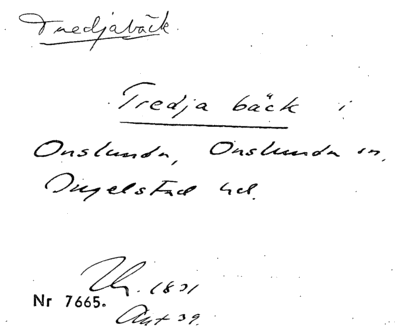 Tredjabäck
Tredja bäck i
Onslunda, Onslunda sn,
Ingelstad hd.
1831
Nr 7665.
39.